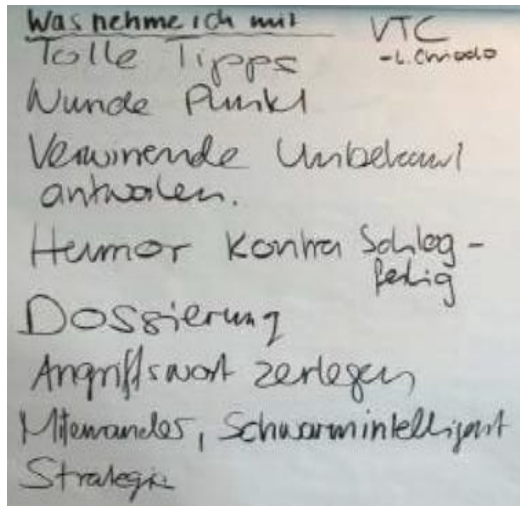 Was nehme ich mit
VTC
Tolle Tipps
Wunde Punkt
Verwirrende Unbekannt
antworten.
Humor Kontra Schlag-
fertig
Dossierung
Angriffswort zerlegen
Miteinander, Schwarmintelligent
Strategie